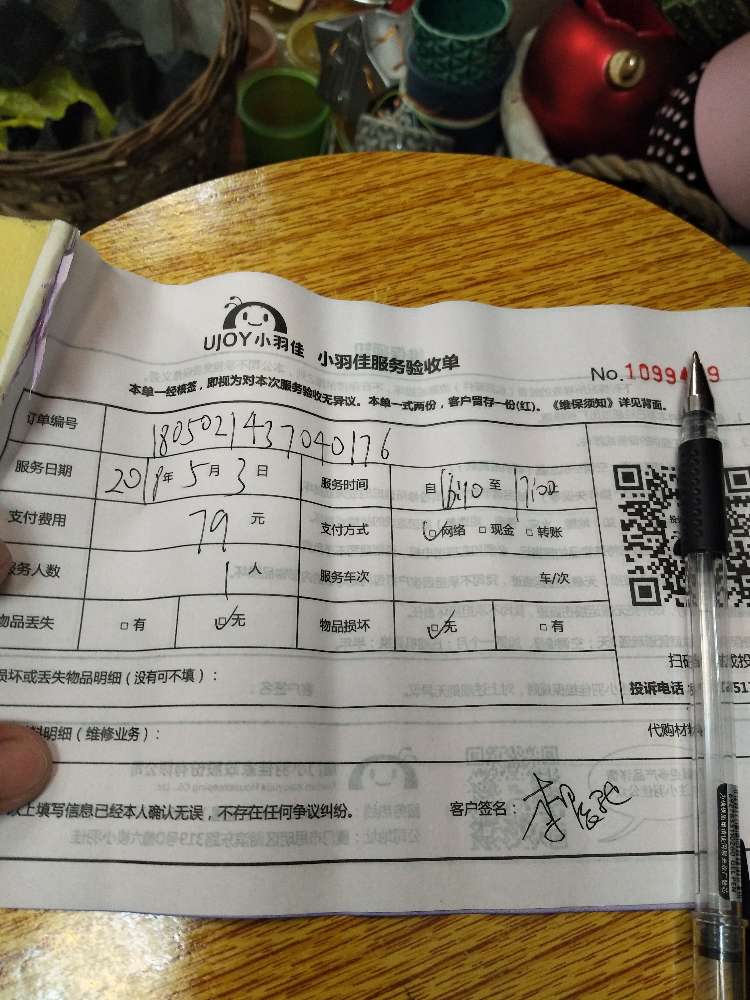 UJOY小羽佳 小羽佳服务验收单
No.1099
本单一经核签，即视为对本次服务验收无异议。本单一式两份，客户留存一份(红)。《维保须知》详见背面。
订单编号 1805021437040176
服务日期 2018年5月3日 服务时间 自16:40至17:00
支付费用 79元 支付方式 ☑网络 □现金 □转账
服务人数 1人 服务车次 车/次
物品丢失 □有 ☑无 物品损坏 ☑无 □有
损坏或丢失物品明细（没有可不填）：
投诉电话
料明细（维修业务）： 代购材料
以上填写信息已经本人确认无误，不存在任何争议纠纷。 客户签名：